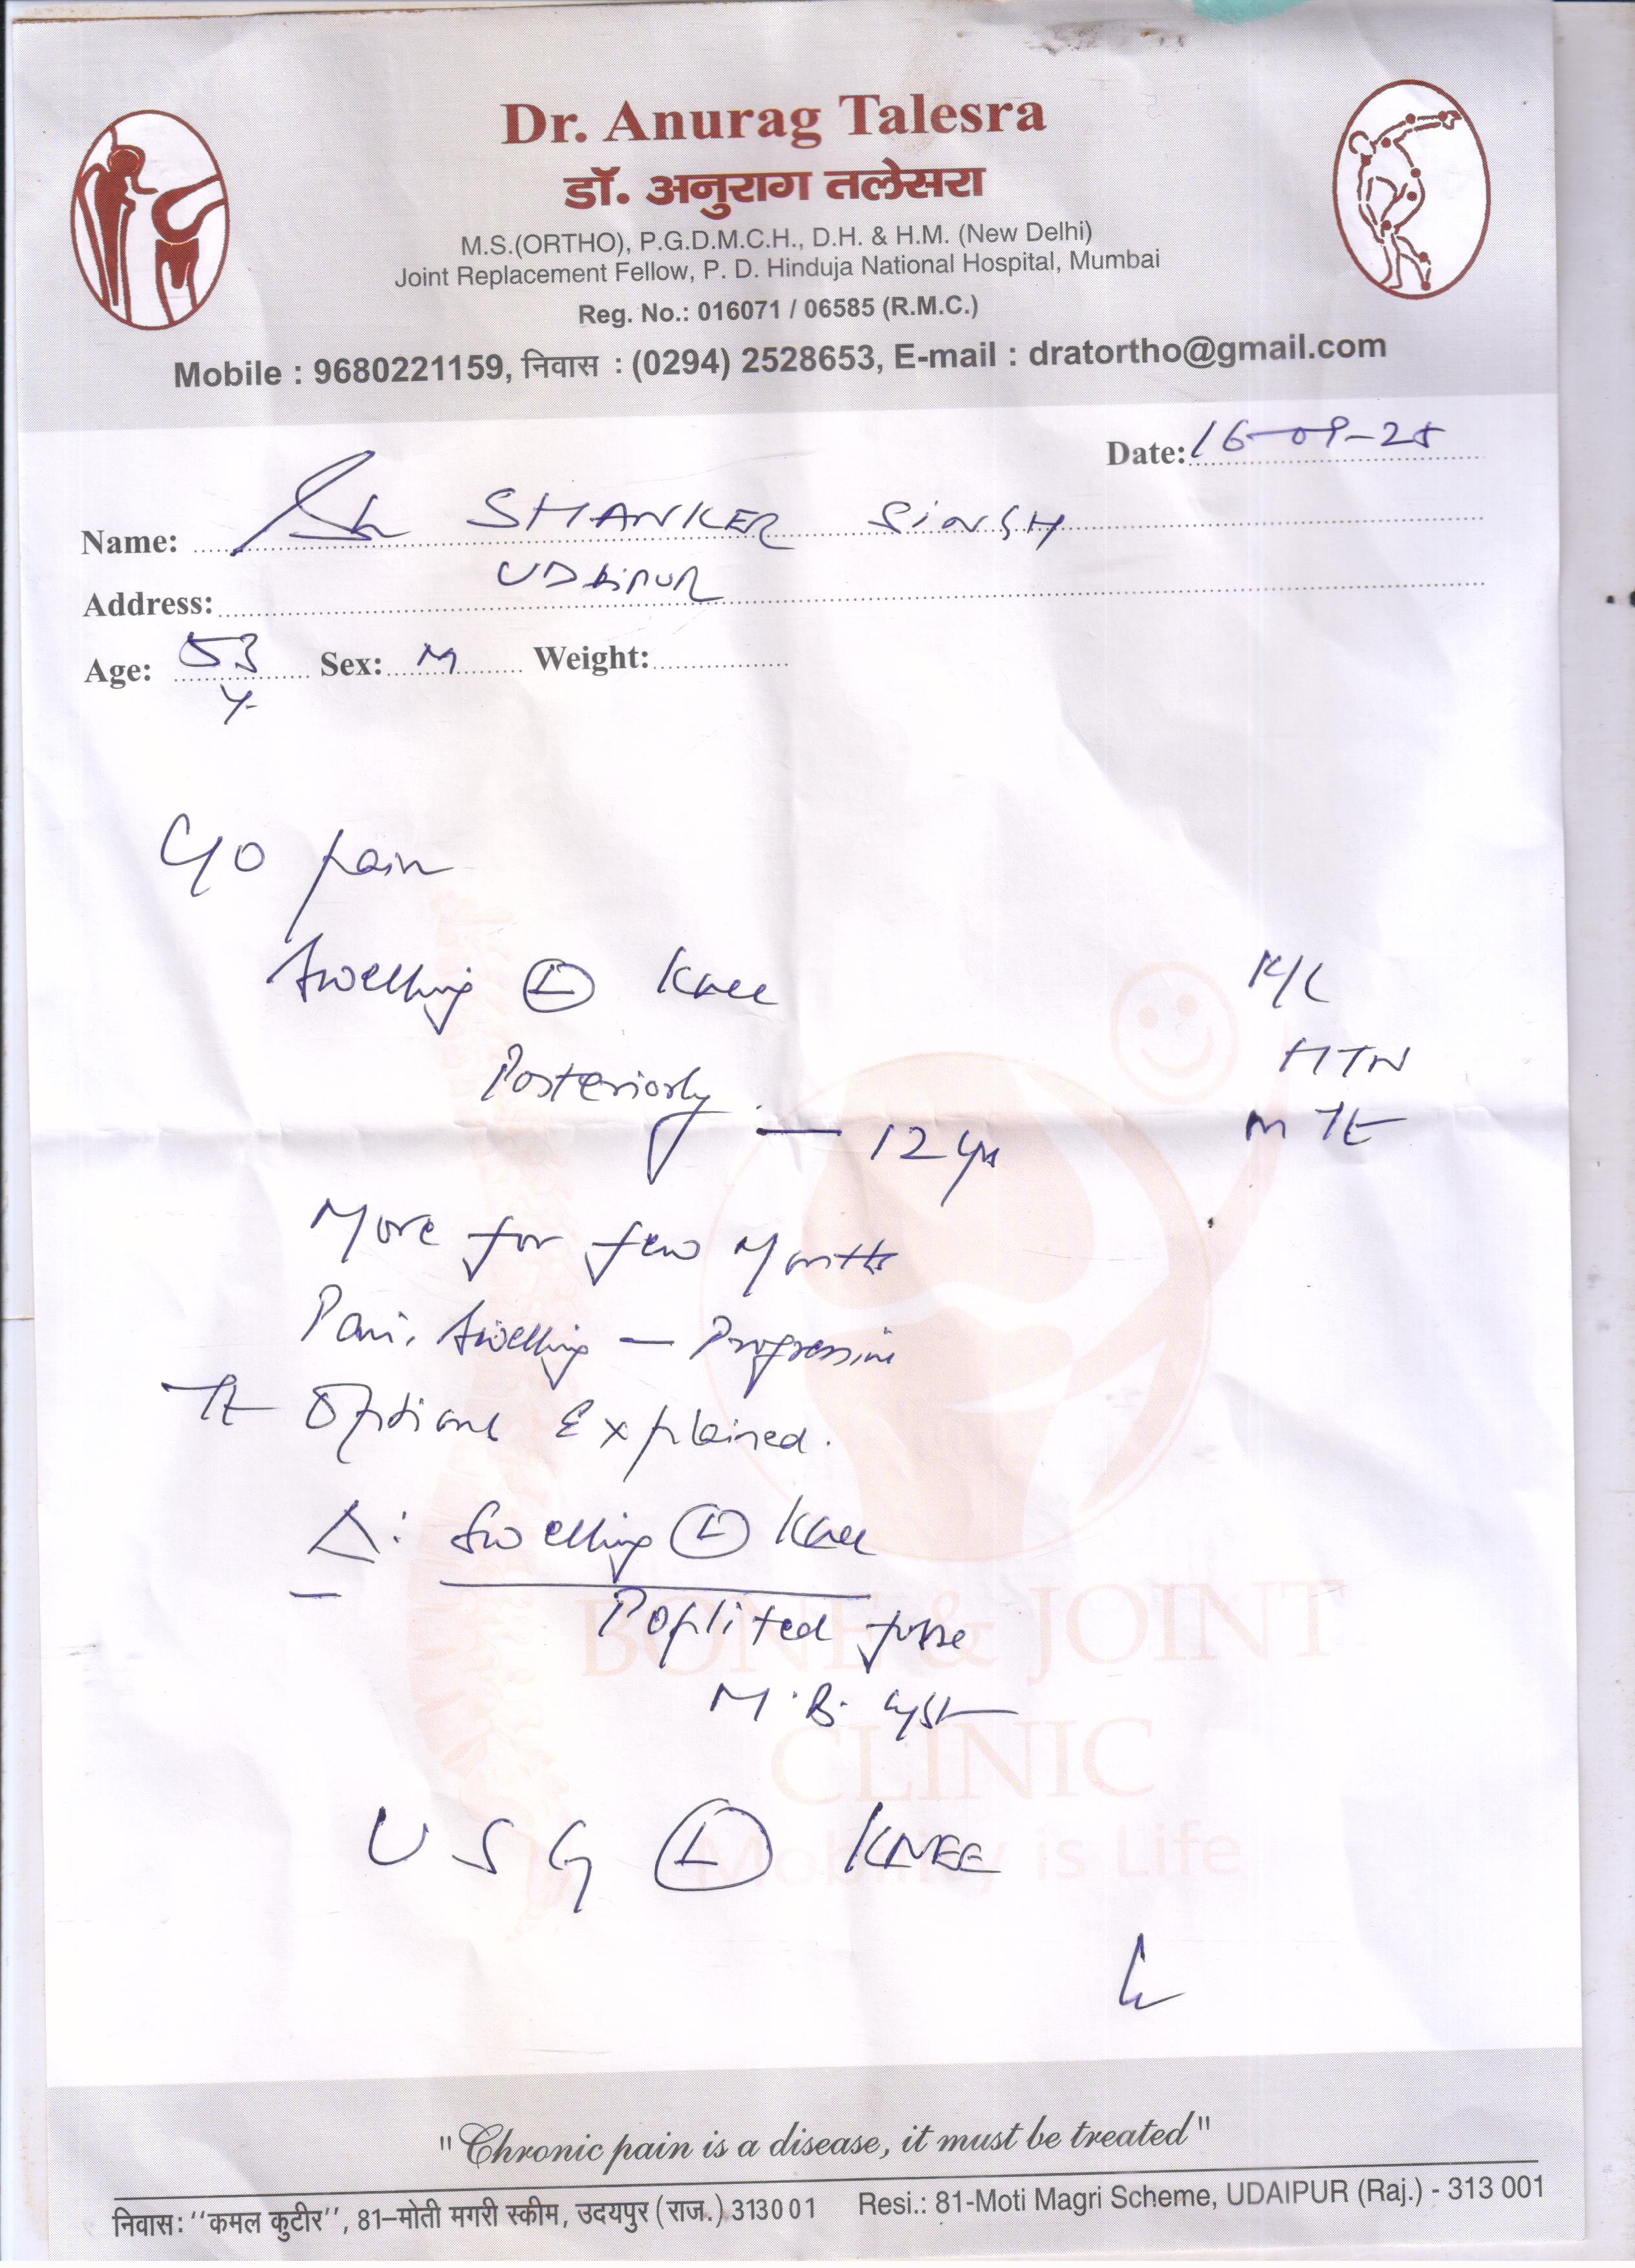 Dr. Anurag Talesra
डॉ. अनुराग तलेसरा
M.S.(ORTHO), P.G.D.M.C.H., D.H. & H.M. (New Delhi)
Joint Replacement Fellow, P. D. Hinduja National Hospital, Mumbai
Reg. No.: 016071 / 06585 (R.M.C.)
Mobile : 9680221159, निवास : (0294) 2528653, E-mail : dratortho@gmail.com
Date: 16-09-25
Name: SHANKER SINGH
Address: UDAIPUR
Age: 53 Y Sex: M Weight:
C/O pain
Swelling (L) Knee
K/C
Posteriorly
HTN
— 12 yrs
More for few Months
Pain, Swelling — Progressive
Options Explained.
Δ: Swelling (L) Knee
Popliteal fossa
M.B. Cyst
USG (L) KNEE
BONE & JOINT
CLINIC
Mobility is Life
"Chronic pain is a disease, it must be treated"
निवास: ''कमल कुटीर'', 81–मोती मगरी स्कीम, उदयपुर (राज.) 313001 Resi.: 81-Moti Magri Scheme, UDAIPUR (Raj.) - 313 001